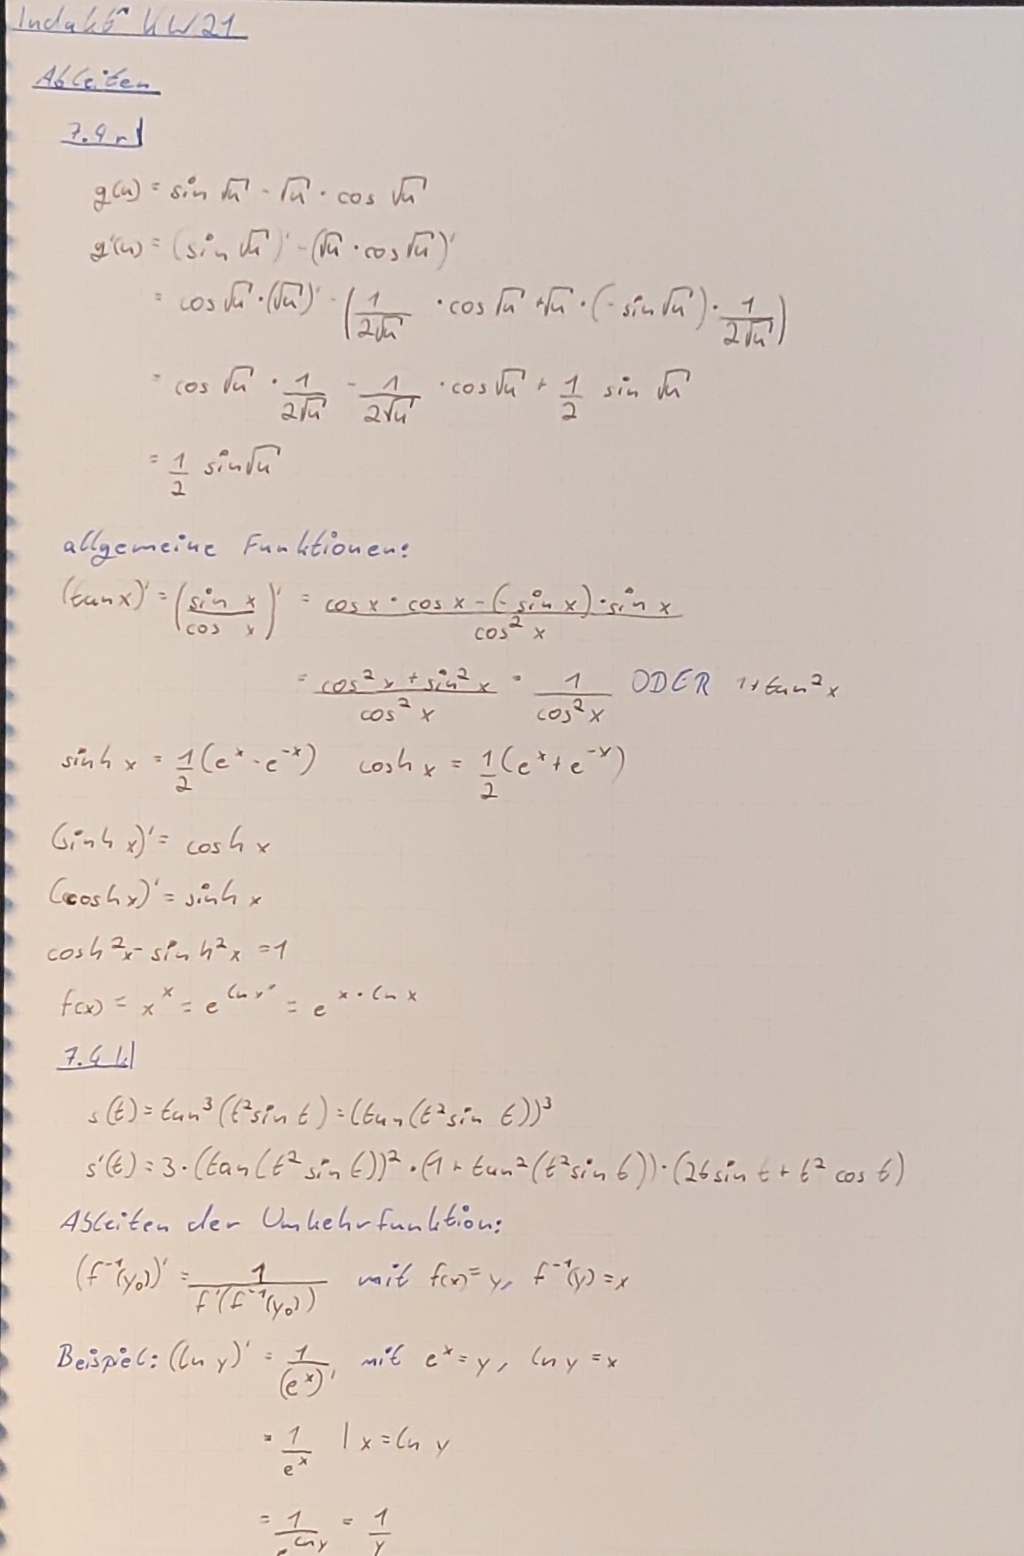 KW21
Ableiten
g(u) = sin √u - √u · cos √u
g'(u) = (sin √u)' - (√u · cos √u)'
= cos √u · (√u)' - (1/(2√u) · cos √u + √u · (- sin √u) · 1/(2√u))
= cos √u · 1/(2√u) - 1/(2√u) · cos √u + 1/2 sin √u
= 1/2 sin √u
allgemeine Funktionen:
(tan x)' = (sin x / cos x)' = (cos x · cos x - (- sin x) · sin x) / cos² x
= (cos² x + sin² x) / cos² x = 1 / cos² x ODER 1 + tan² x
sinh x = 1/2 (e^x - e^-x) cosh x = 1/2 (e^x + e^-x)
(sinh x)' = cosh x
(cosh x)' = sinh x
cosh² x - sinh² x = 1
f(x) = x^x = e^(ln x^x) = e^(x · ln x)
s(t) = tan³ (t² sin t) = (tan (t² sin t))³
s'(t) = 3 · (tan (t² sin t))² · (1 + tan² (t² sin t)) · (2t sin t + t² cos t)
Ableiten der Umkehrfunktion:
(f^-1(y₀))' = 1 / f'(f^-1(y₀)) mit f(x) = y, f^-1(y) = x
Beispiel: (ln y)' = 1 / (e^x)' mit e^x = y, ln y = x
= 1 / e^x | x = ln y
= 1 / e^(ln y) = 1 / y